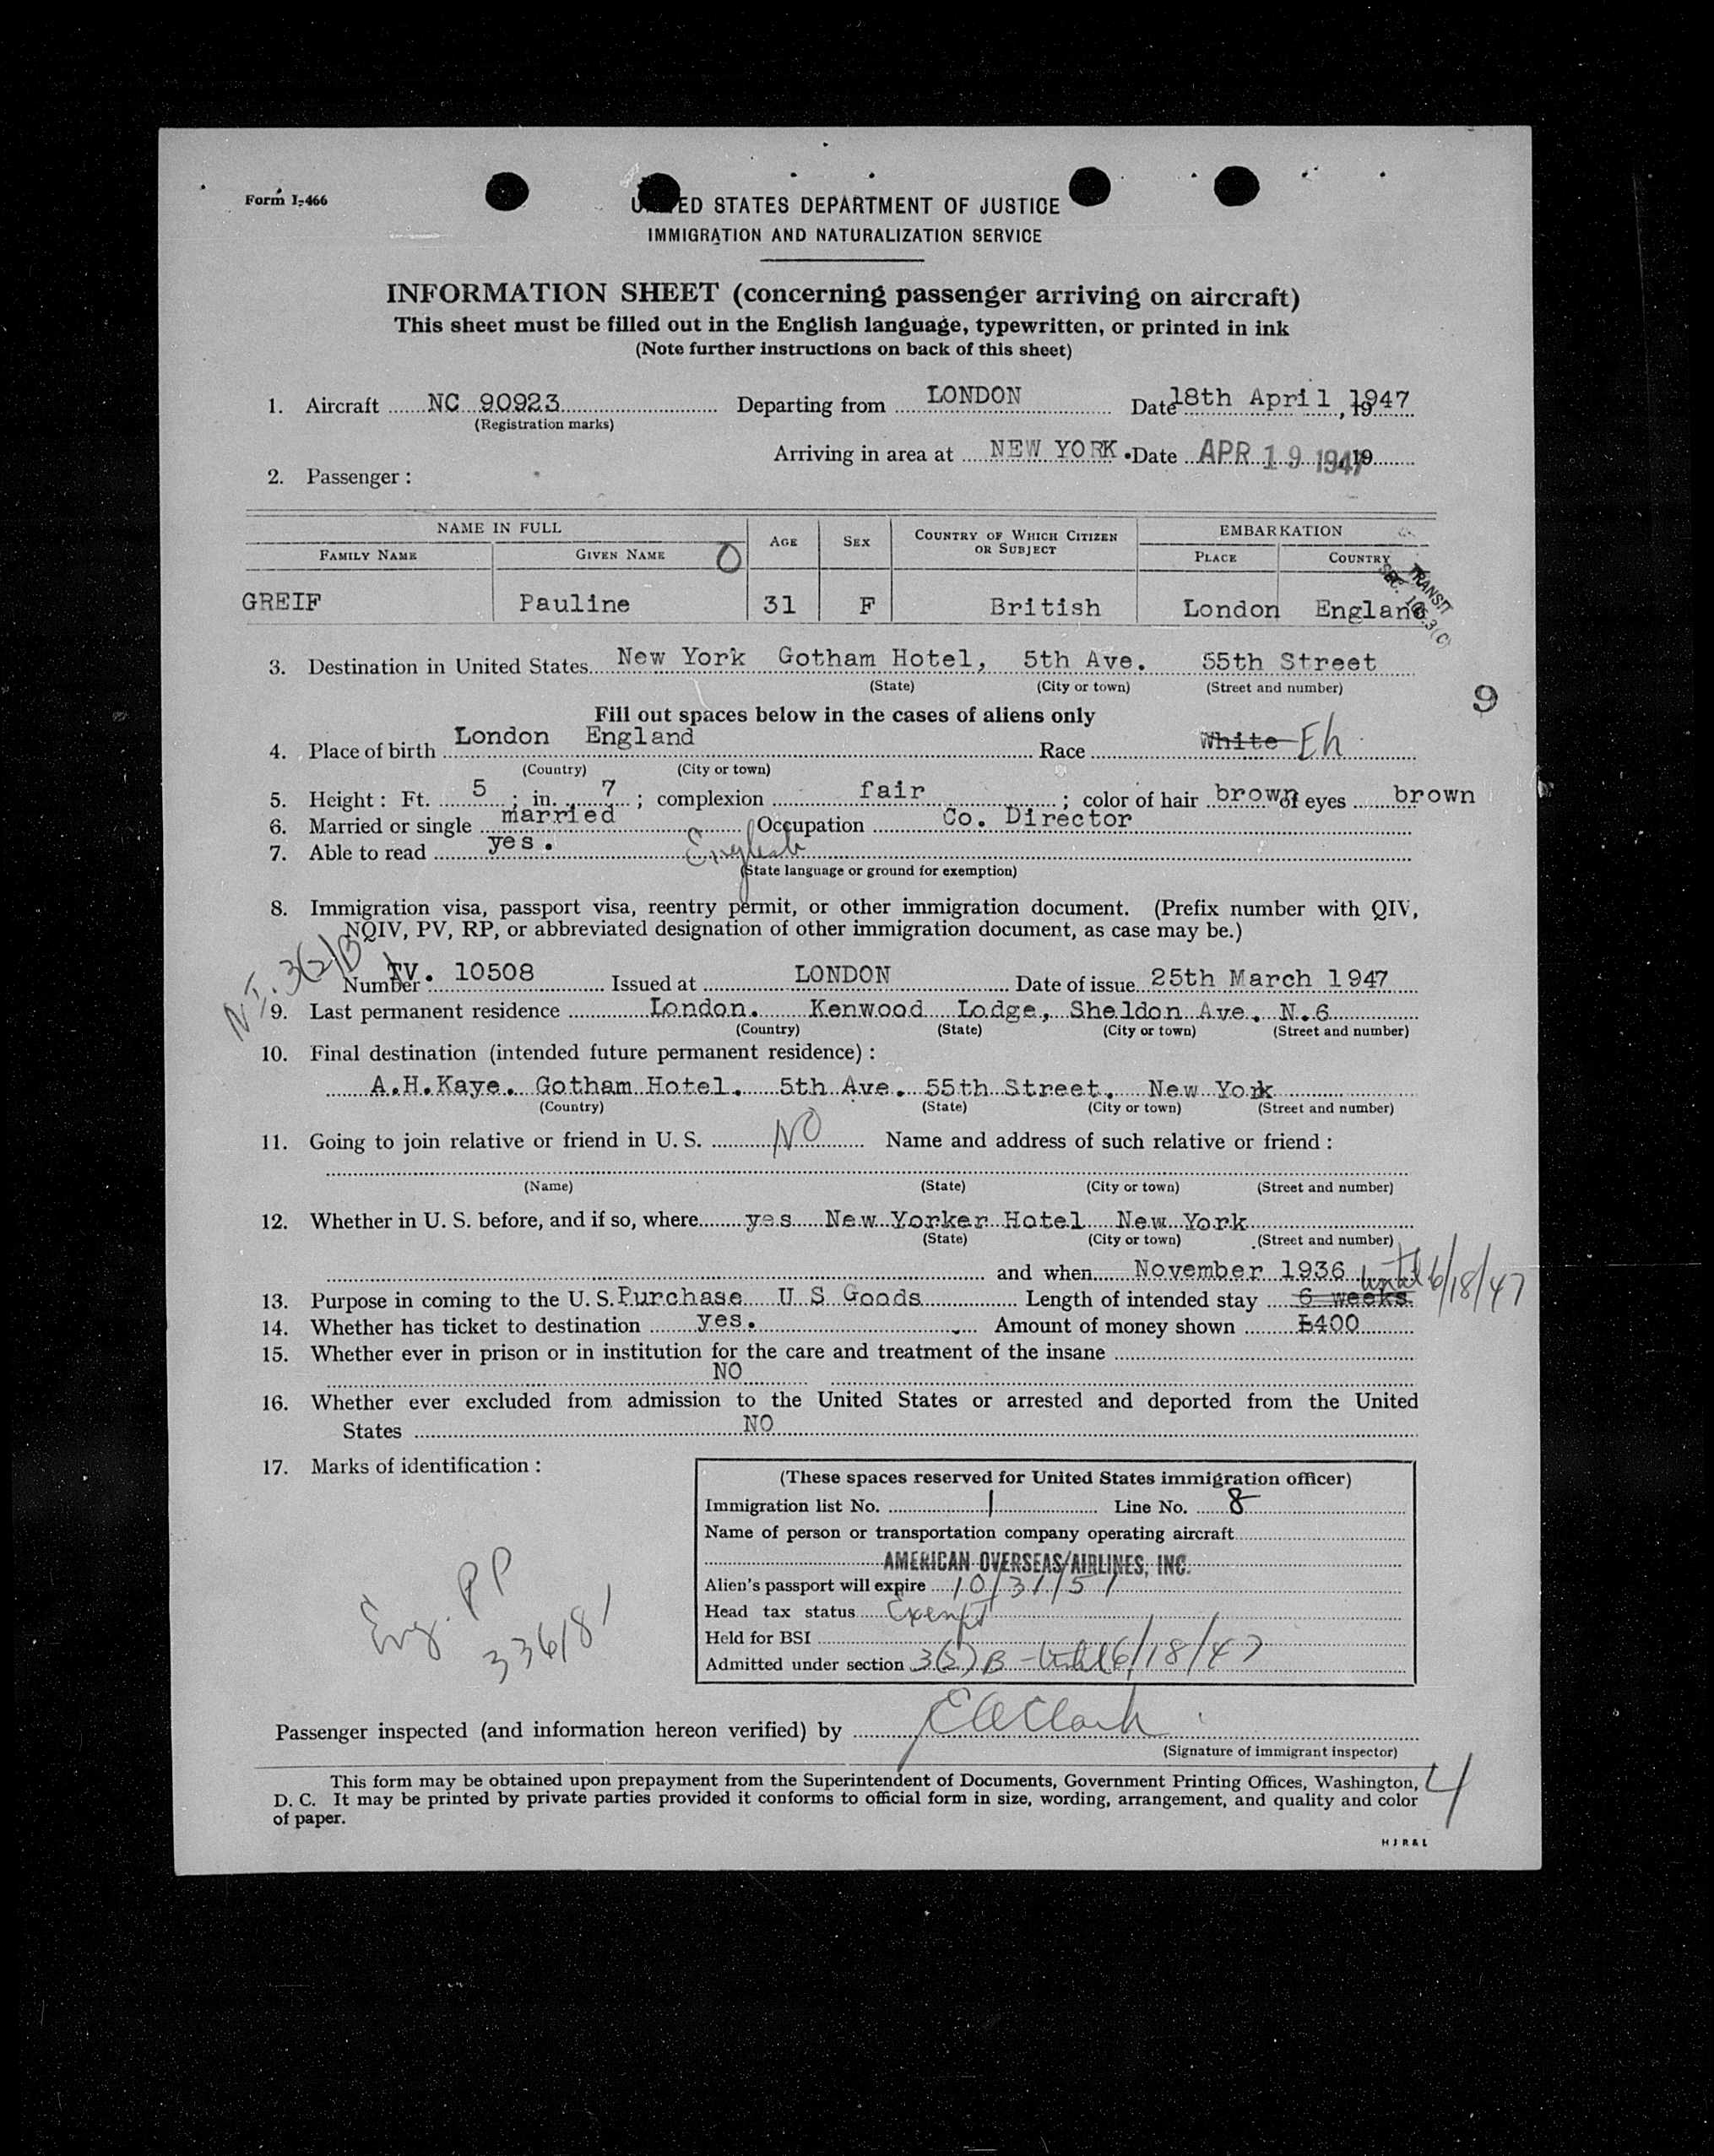 Form I-466
UNITED STATES DEPARTMENT OF JUSTICE
IMMIGRATION AND NATURALIZATION SERVICE
INFORMATION SHEET (concerning passenger arriving on aircraft)
This sheet must be filled out in the English language, typewritten, or printed in ink
(Note further instructions on back of this sheet)
1. Aircraft NC 90923 Departing from LONDON Date 18th April 1947, 19
(Registration marks)
Arriving in area at NEW YORK Date APR 19 1947, 19
2. Passenger :
NAME IN FULL AGE SEX COUNTRY OF WHICH CITIZEN OR SUBJECT EMBARKATION
FAMILY NAME GIVEN NAME O PLACE COUNTRY
TRANSIT
SEC. 105.3(C)
GREIF Pauline 31 F British London England
3. Destination in United States New York Gotham Hotel, 5th Ave. 55th Street
(State) (City or town) (Street and number)
9
Fill out spaces below in the cases of aliens only
4. Place of birth London England Race White Eh
(Country) (City or town)
5. Height : Ft. 5 ; in. 7 ; complexion fair ; color of hair brown of eyes brown
6. Married or single married Occupation Co. Director
7. Able to read yes. English
(State language or ground for exemption)
8. Immigration visa, passport visa, reentry permit, or other immigration document. (Prefix number with QIV,
NQIV, PV, RP, or abbreviated designation of other immigration document, as case may be.)
N.I. 3(2)B
Number TV. 10508 Issued at LONDON Date of issue 25th March 1947
9. Last permanent residence London. Kenwood Lodge, Sheldon Ave. N.6
(Country) (State) (City or town) (Street and number)
10. Final destination (intended future permanent residence) :
A.H.Kaye. Gotham Hotel. 5th Ave. 55th Street, New York
(Country) (State) (City or town) (Street and number)
11. Going to join relative or friend in U. S. NO Name and address of such relative or friend :
(Name) (State) (City or town) (Street and number)
12. Whether in U. S. before, and if so, where yes New Yorker Hotel New York
(State) (City or town) (Street and number)
and when November 1936 until 6/18/47
13. Purpose in coming to the U. S. Purchase U S Goods Length of intended stay 6 weeks.
14. Whether has ticket to destination yes. Amount of money shown £400
15. Whether ever in prison or in institution for the care and treatment of the insane
NO
16. Whether ever excluded from admission to the United States or arrested and deported from the United
States NO
17. Marks of identification :
Eng. PP
33618
(These spaces reserved for United States immigration officer)
Immigration list No. 1 Line No. 8
Name of person or transportation company operating aircraft
AMERICAN OVERSEAS AIRLINES, INC.
Alien's passport will expire 10/31/51
Head tax status Exempt
Held for BSI
Admitted under section 3(2)B - Until 6/18/47
Passenger inspected (and information hereon verified) by E A Clark
(Signature of immigrant inspector)
This form may be obtained upon prepayment from the Superintendent of Documents, Government Printing Offices, Washington,
D. C. It may be printed by private parties provided it conforms to official form in size, wording, arrangement, and quality and color
of paper.
4
HJR&L